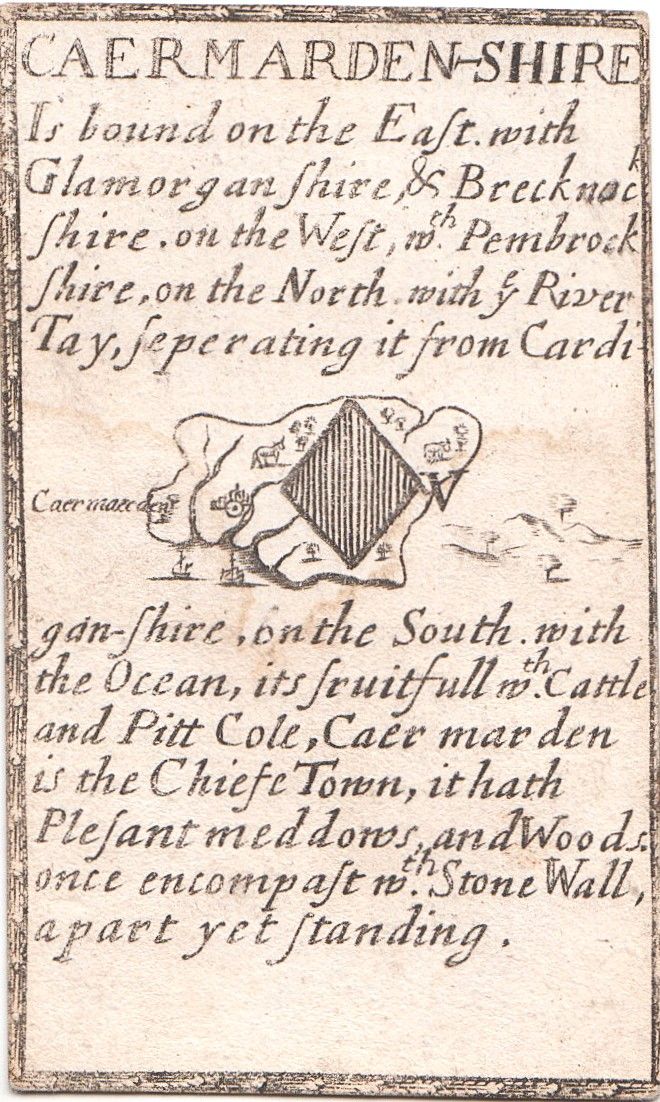 CAERMARDEN-SHIRE
Is bound on the Eaſt. with
Glamorgan ſhire, & Brecknock
ſhire. on the Weſt, wth. Pembrock
ſhire, on the North. with ye River
Tay, ſeperating it from Cardi-
V
Caermaerden
gan-ſhire, on the South. with
the Ocean, its fruitfull wth. Cattle
and Pitt Cole, Caer marden
is the Chiefe Town, it hath
Pleſant meddows, and Woods.
once encompaſt wth. Stone Wall,
apart yet ſtanding.